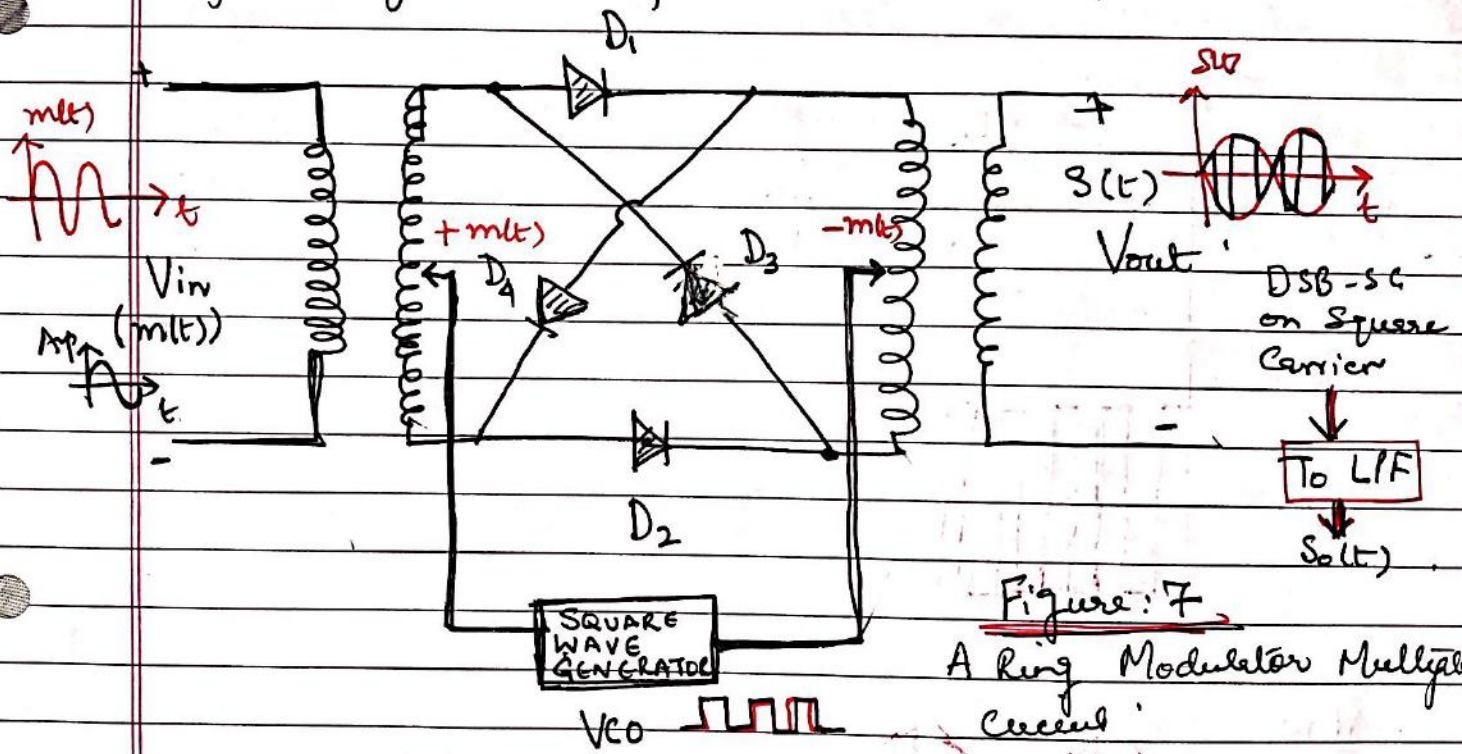 D1
+
m(t)
t
Vin
(m(t))
Ap
t
-
+m(t)
D4
D3
-m(t)
D2
SQUARE
WAVE
GENERATOR
VCO
+
S(t)
Vout
t
DSB-SC
on Square
Carrier
To LPF
So(t)
-
Figure: 7
A Ring Modulator